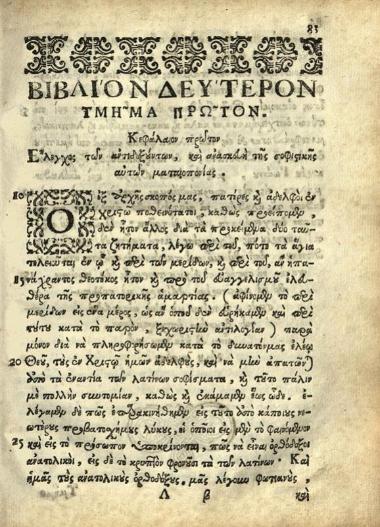 83
ΒΙΒΛΙΌΝ ΔΕΥΤΕΡΟΝ
ΤΜΗΜΑ ΠΡΩΤΟΝ.
Κεφάλαιον πρῶτον
Ἔλεγχος τῶν ἀντιδοξούντων, καὶ ἀνασκευὴ τῆς σοφιστικῆς
αὐτῶν ματαιοπονίας.
10 Ὁ ἐξ ἀρχῆς σκοπός μας, πατέρες κ̀ ἀδελφοὶ ἐν
χριστῷ ποθεινότατοι, καθὼς προείπομεν,
δὲν ἦτον ἄλλος διὰ τὰ προκείμενα δύο ταῦ-
τα ζητήματα, λέγω περὶ τοῦ, πότε τὰ ἅγια
τελειοῦνται κ̀ περὶ τῶν μερίδων, κ̀ περὶ τοῦ, ἂν ἡ πα-
15 νάχραντος θεοτόκος ἦτον κ̀ πρὸ τοῦ εὐαγγελισμοῦ ἐλευ-
θέρα τῆς προπατορικῆς ἁμαρτίας (ἀφίνομεν τὸ περὶ
μερίδων εἰς ἕνα μέρος, ὡς ἂν ὁποῦ δὲν
τούτου κατὰ τὸ παρὸν, ξεχωριστὴ ἀντιλογία) παρὰ
μόνον διὰ νὰ πληροφορήσωμεν κατὰ τὸ δυνατὸν μας ἐλέῳ
20 Θεοῦ, τοὺς ἐν Χριστῷ ἡμῶν ἀδελφοὺς, καὶ νὰ μὴν ἀπατῶν)
ἀπὸ τὰ ἐναντία τῶν λατίνων σοφίσματα, κ̀ τοῦτο πάλιν
μὲ πολλὴν συντομίαν, καθὼς κ̀ ἐκάμαμεν ἕως ὧδε. ἐ-
λέγαμεν δὲ πῶς ἐπαρακινήθημεν εἰς τοῦτο ἀπὸ κάποιους νε-
ωτέρους προβατοσχήμους λύκους, οἱ ὁποῖοι εἰς μὲν τὸ φαινόμενον
25 καὶ εἰς τὸ πρόσωπον ὑποκρίνονται, πῶς νὰ εἶναι ὀρθόδοξοι
ἀνατολικοὶ, εἰς δὲ τὸ κρυπτὸν φρονοῦσι τὰ τῶν λατίνων. Καὶ
ἡμᾶς τοὺς ἀνατολικοὺς ὀρθοδόξους, μᾶς λέγουν φωτιανοὺς,
Λ β καὶ